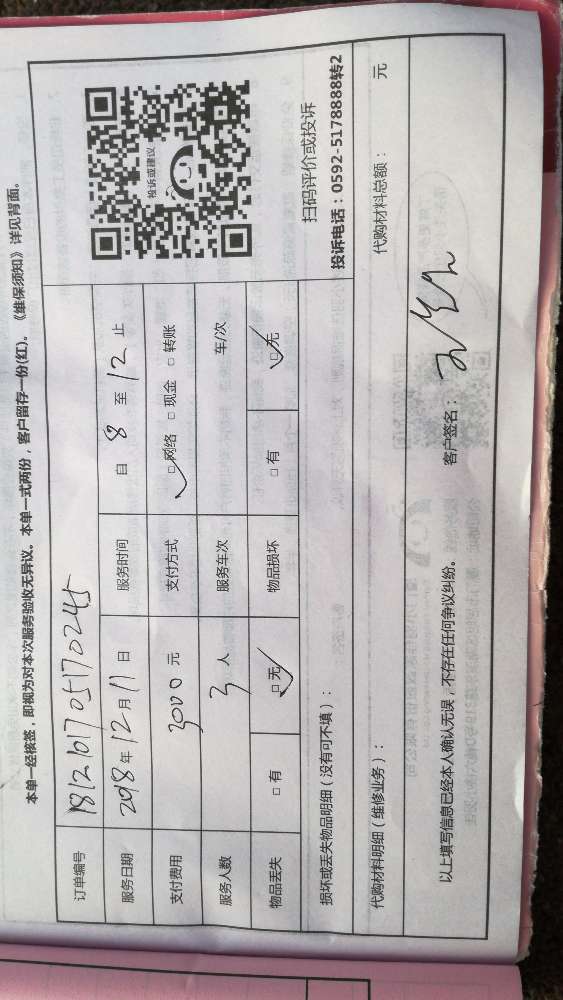 本单一经核签，即视为对本次服务验收无异议。本单一式两份，客户留存一份(红)。《维保须知》详见背面。
订单编号 1812101705170245
服务日期 2018年12月11日 服务时间 自 8 至 12 止
支付费用 3000 元 支付方式 □网络 □现金 □转账
服务人数 3 人 服务车次 车/次
物品丢失 □有 □无 物品损坏 □有 □无
投诉或建议
扫码评价或投诉
投诉电话：0592-5178888转2
损坏或丢失物品明细（没有可不填）：
代购材料明细（维修业务）： 代购材料总额： 元
以上填写信息已经本人确认无误，不存在任何争议纠纷。 客户签名：